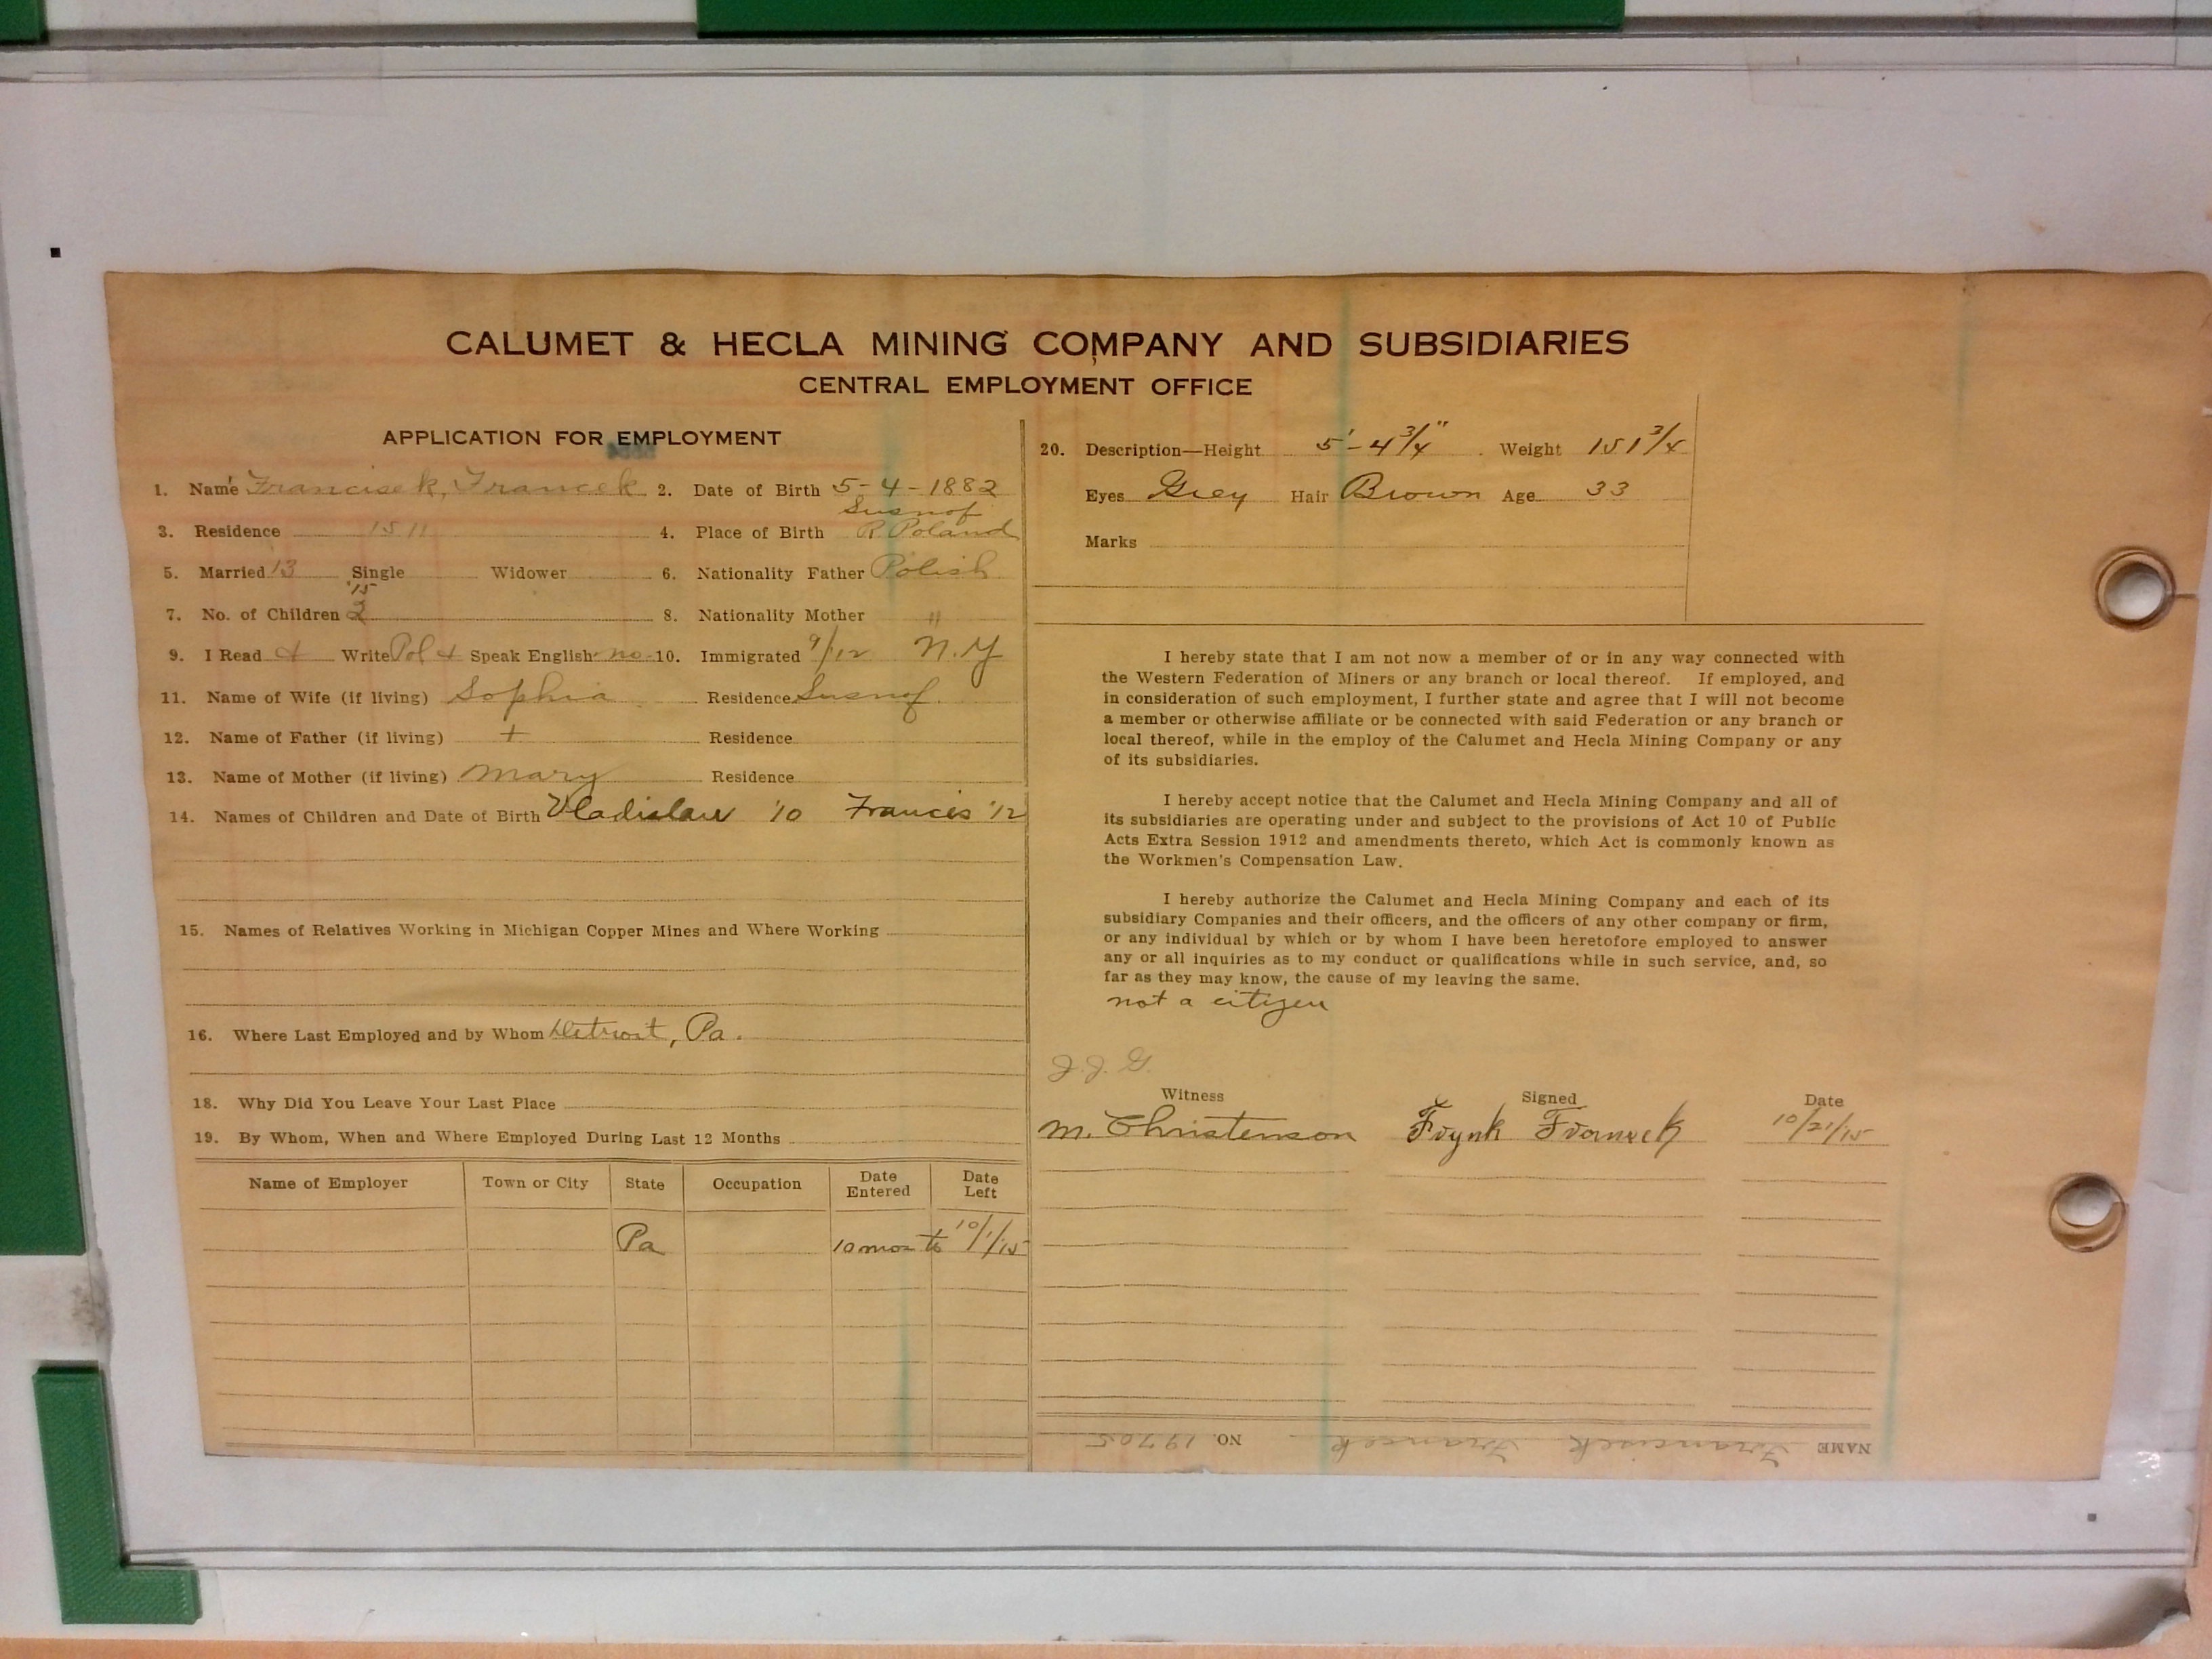 CALUMET & HECLA MINING COMPANY AND SUBSIDIARIES
CENTRAL EMPLOYMENT OFFICE
APPLICATION FOR EMPLOYMENT
1. Name Francisek, Francek 2. Date of Birth 5-4-1882
Susnof
3. Residence 4. Place of Birth R. Poland
5. Married 13 Single Widower 6. Nationality Father Polish
'15
7. No. of Children 2 8. Nationality Mother "
9. I Read + Write Pol + Speak English no 10. Immigrated 9/12 N.Y
11. Name of Wife (if living) Sophia Residence Susnof
12. Name of Father (if living) + Residence
13. Name of Mother (if living) Mary Residence
14. Names of Children and Date of Birth Vladislaw '10 Francis '12
15. Names of Relatives Working in Michigan Copper Mines and Where Working
16. Where Last Employed and by Whom Detroit, Pa.
18. Why Did You Leave Your Last Place
19. By Whom, When and Where Employed During Last 12 Months
Name of Employer Town or City State Occupation Date Entered Date Left
Pa 10 mos to 10/1/15
20. Description—Height 5'-4 3/4" Weight 151 3/4
Eyes Grey Hair Brown Age 33
Marks
I hereby state that I am not now a member of or in any way connected with
the Western Federation of Miners or any branch or local thereof. If employed, and
in consideration of such employment, I further state and agree that I will not become
a member or otherwise affiliate or be connected with said Federation or any branch or
local thereof, while in the employ of the Calumet and Hecla Mining Company or any
of its subsidiaries.
I hereby accept notice that the Calumet and Hecla Mining Company and all of
its subsidiaries are operating under and subject to the provisions of Act 10 of Public
Acts Extra Session 1912 and amendments thereto, which Act is commonly known as
the Workmen's Compensation Law.
I hereby authorize the Calumet and Hecla Mining Company and each of its
subsidiary Companies and their officers, and the officers of any other company or firm,
or any individual by which or by whom I have been heretofore employed to answer
any or all inquiries as to my conduct or qualifications while in such service, and, so
far as they may know, the cause of my leaving the same.
not a citizen
J. J. G.
Witness Signed Date
M. Christenson 10/21/15
NAME Francisek Francek NO. 19705